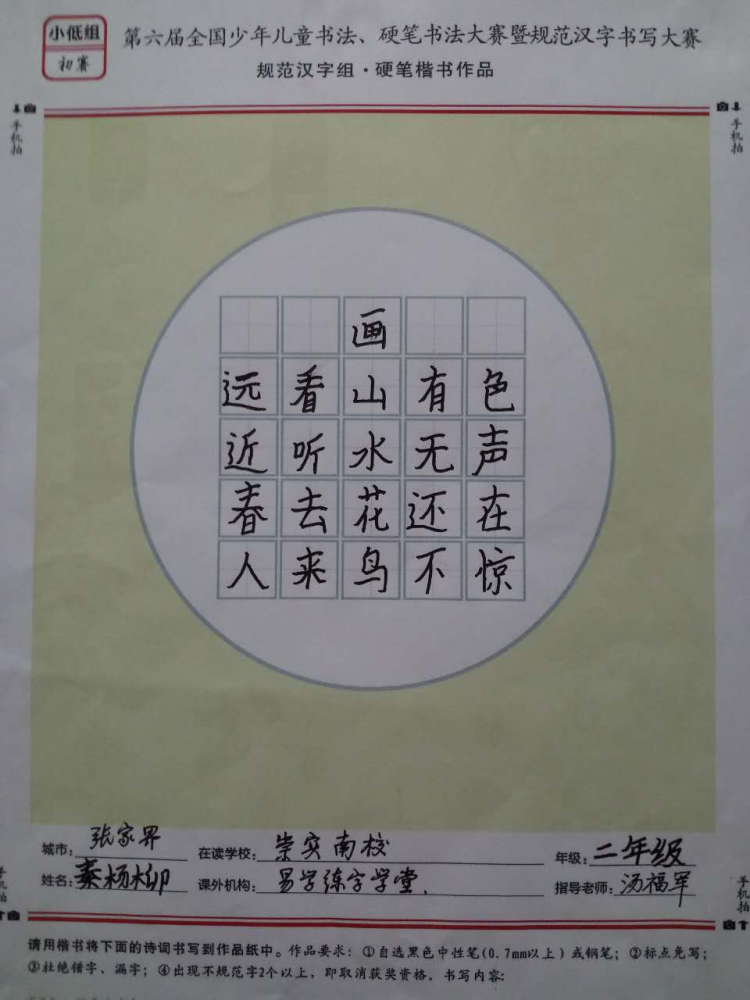 小低组
初赛
第六届全国少年儿童书法、硬笔书法大赛暨规范汉字书写大赛
规范汉字组·硬笔楷书作品
手机拍
手机拍
画
远看山有色
近听水无声
春去花还在
人来鸟不惊
城市：张家界 在读学校：崇实南校 年级：二年级
姓名：秦杨柳 课外机构：易学练字学堂. 指导老师：汤福军
手机拍
手机拍
请用楷书将下面的诗词书写到作品纸中。作品要求：①自选黑色中性笔(0.7mm以上)或钢笔；②标点免写；
③杜绝错字、漏字；④出现不规范字2个以上，即取消获奖资格。书写内容：